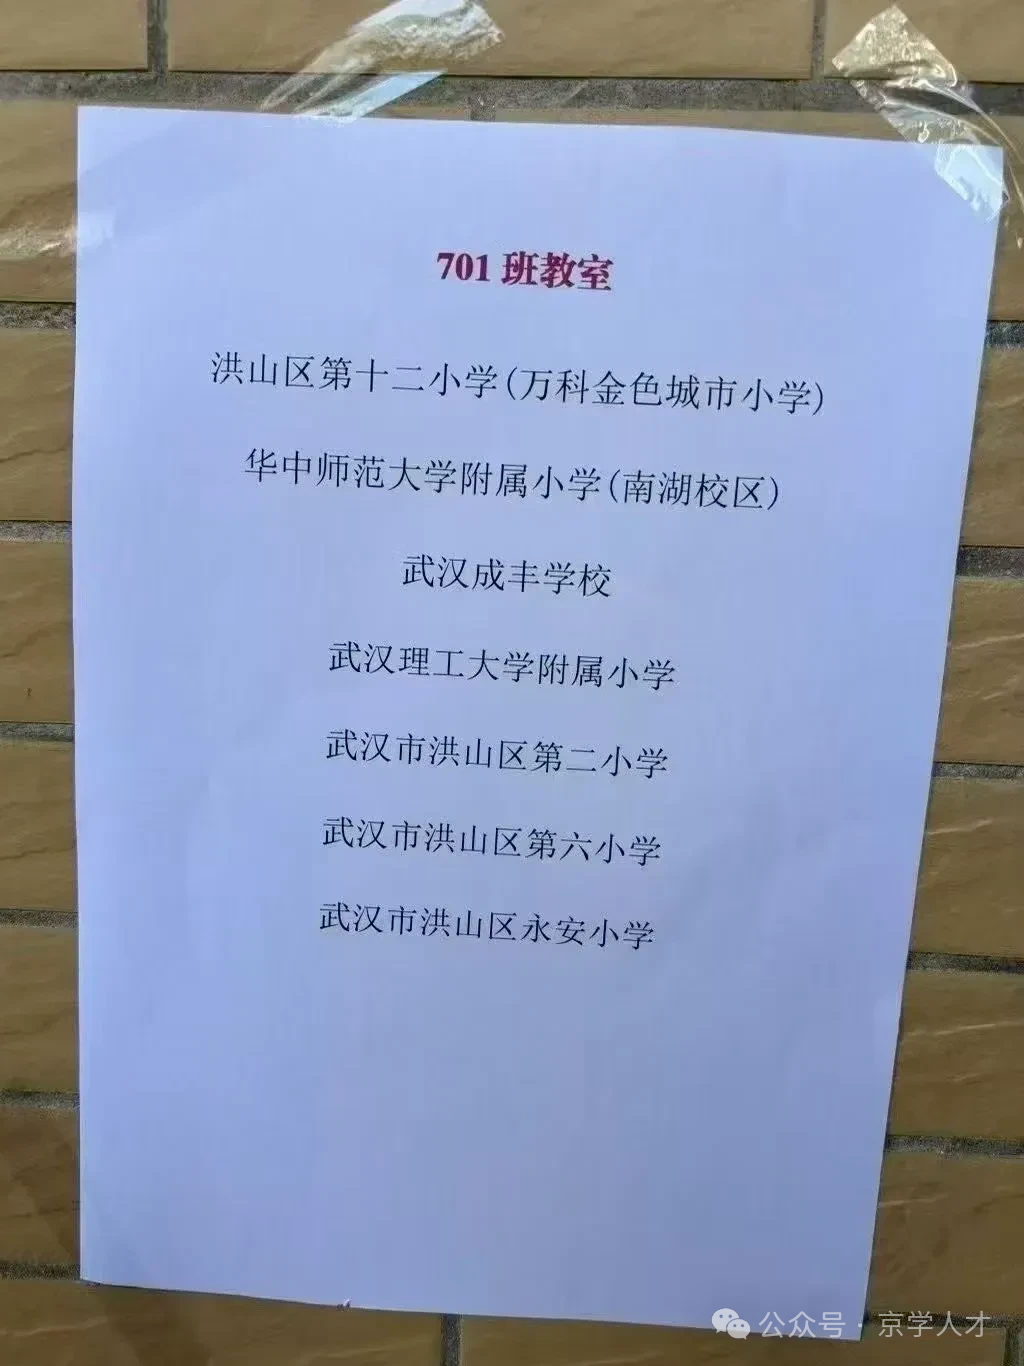 701班教室
洪山区第十二小学(万科金色城市小学)
华中师范大学附属小学(南湖校区)
武汉成丰学校
武汉理工大学附属小学
武汉市洪山区第二小学
武汉市洪山区第六小学
武汉市洪山区永安小学
公众号·京学人才